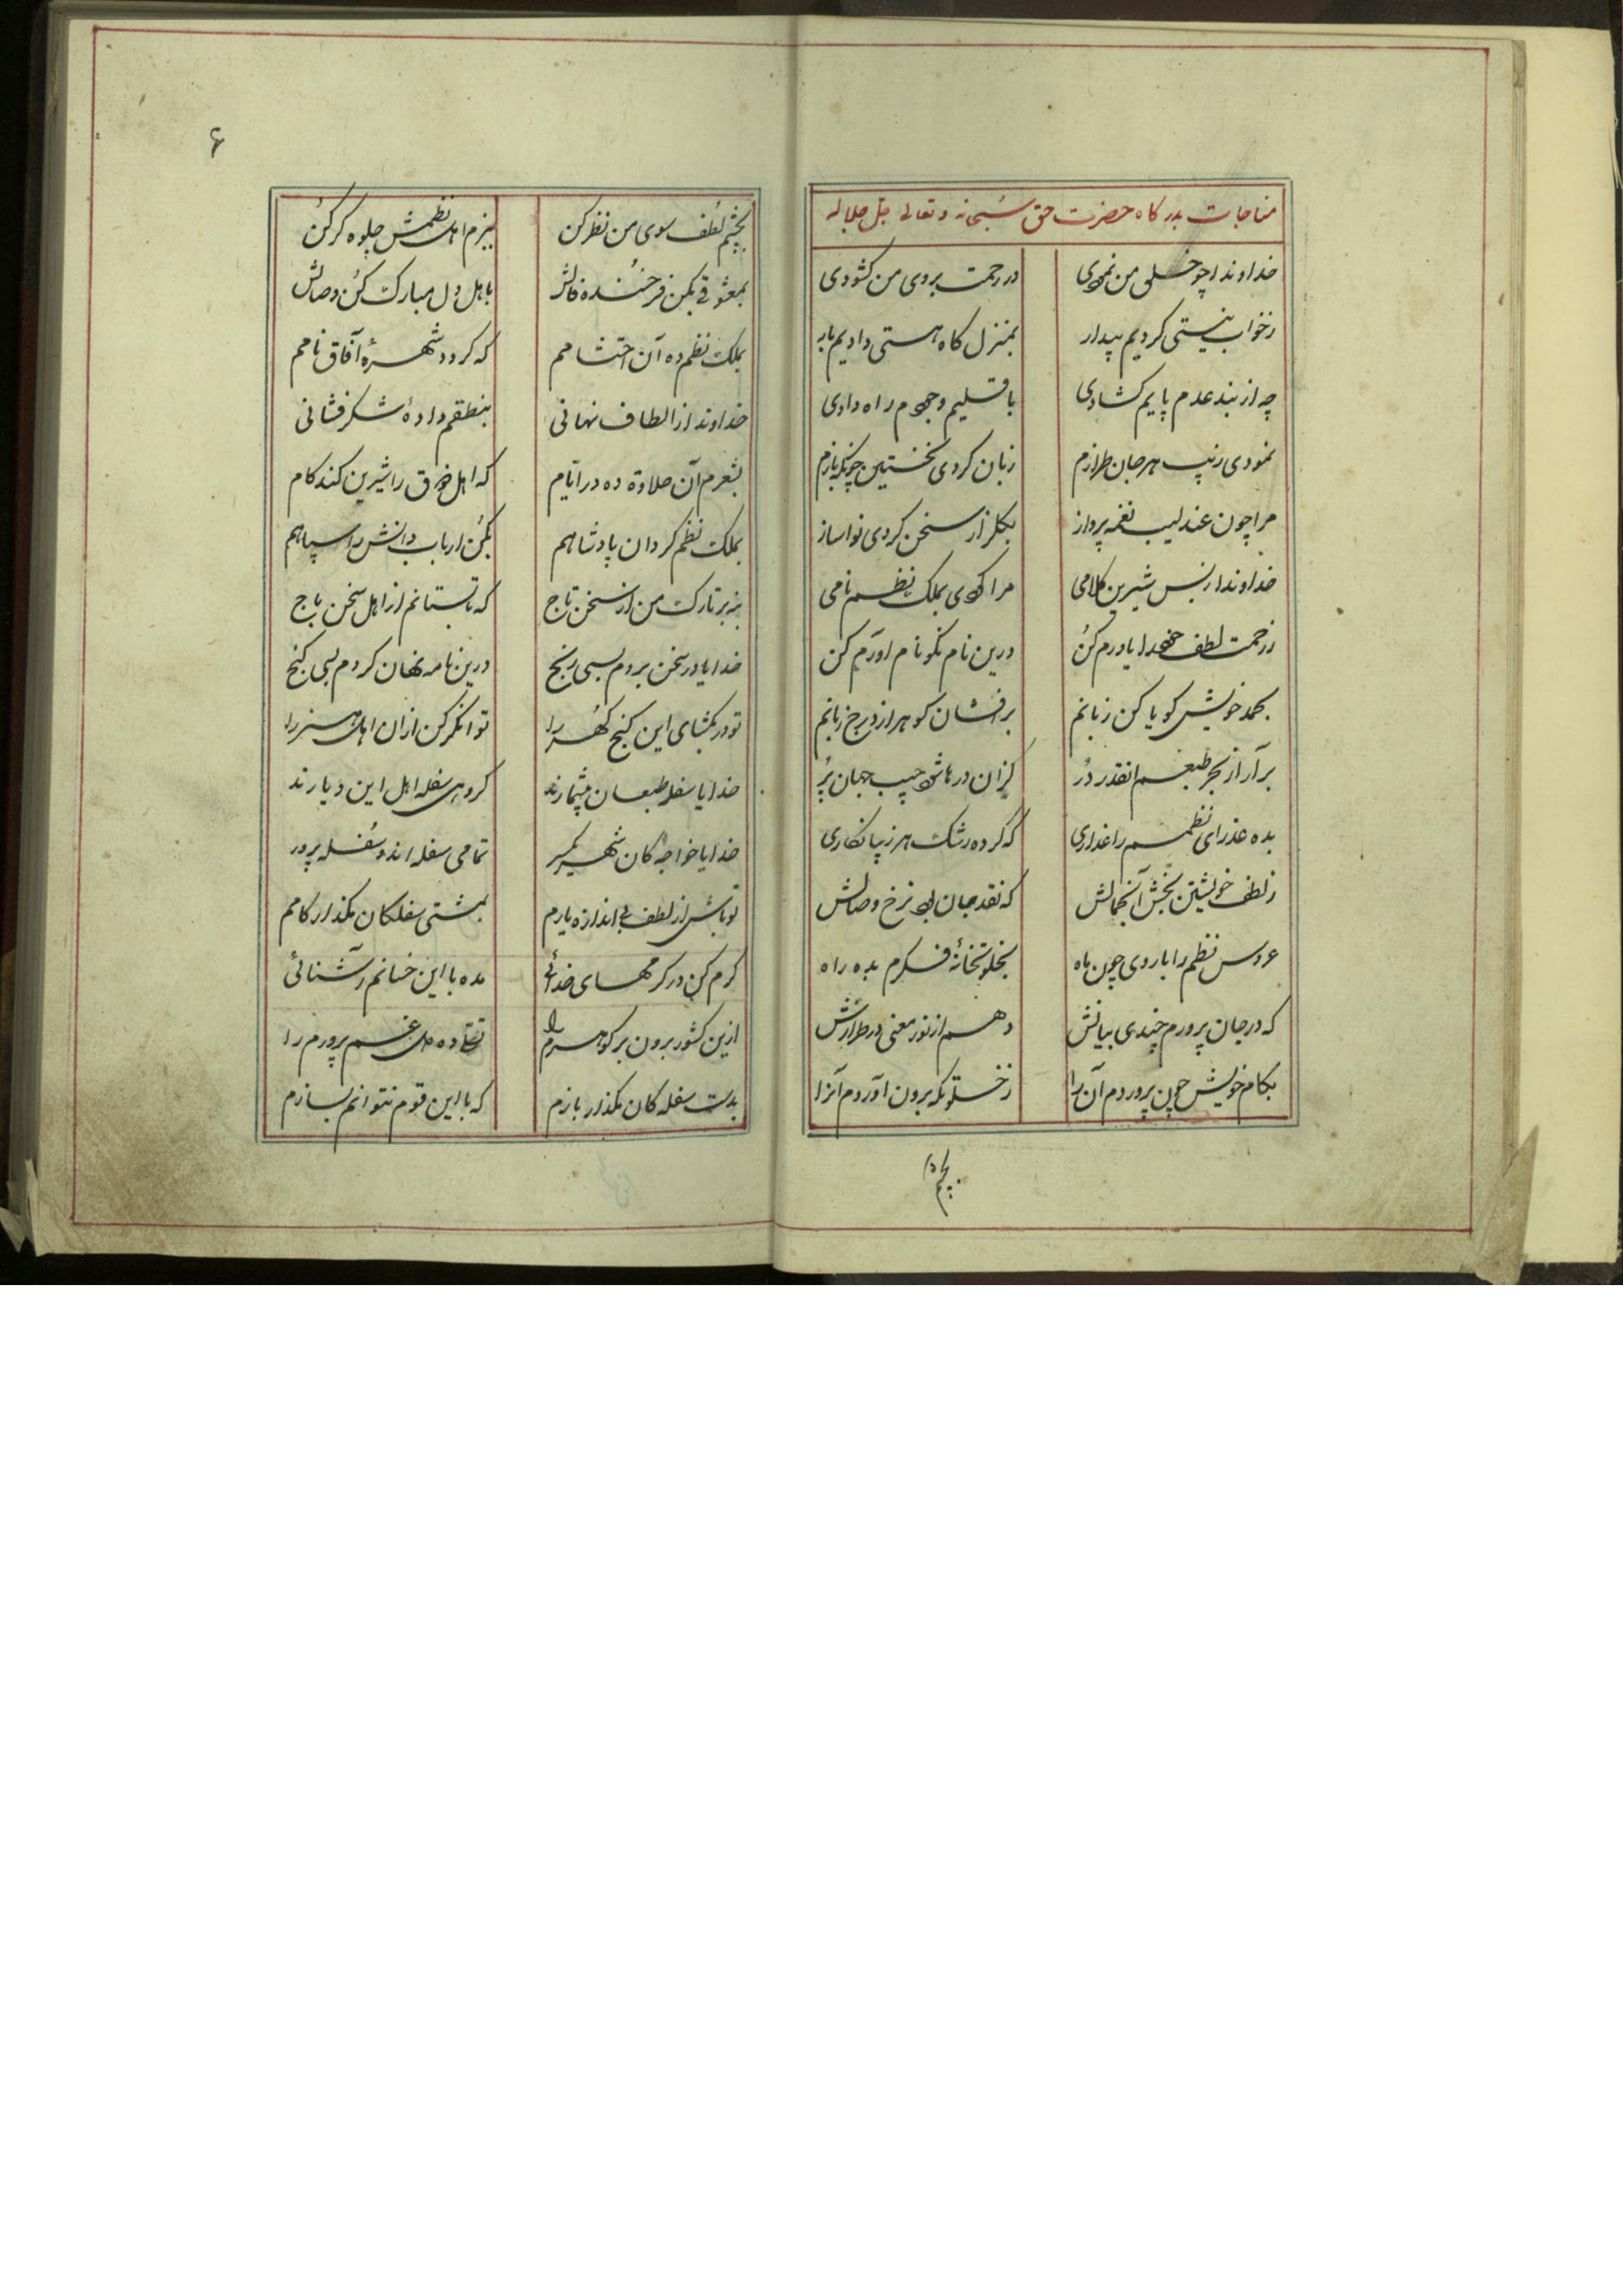 مناجات بدرکاه حضرت حق سبحانه و تعالی جل جلاله
خداوندا چو خلق من نمودی در رحمت بروی من کشودی
ز خواب نیستی کردیم بیدار بمنزل کاه هستی دادیم بار
چه از بند عدم پایم کشادی باقلیم وجودم راه دادی
نمودی زیب هر جان طرازم زبان کردی نخستین
مرا چون عندلیب نغمه پرداز بکلزار سخن کردی نواساز
خداوندا ز بس شیرین کلامی مرا کردی بملک نظم نامی
ز رحمت لطف خود را یاورم کن درین نام نکو نام آورم کن
بحمد خویش کویا کن زبانم برافشان کوهر از درج زبانم
برآر از بحر طبعم انقدر در کزان درها شود جیب جهان پر
بده عذرای نظمم را عذاری که کردد رشک هر زیبا نکاری
ز لطف خویشتن بخش آن جمالش که نقد جان بود نرخ وصالش
عروس نظم را با روی چون ماه بخلوتخانهٔ فکرم بده راه
که در جان پرورم چندی بیانش دهم از نور معنی در طرازش
بکام خویش چون پروردم آن را ز خلوتکه برون آوردم آنرا
بچشم
۶
بچشم لطف سوی من نظر کن ببزم اهل نظمش جلوه کر کن
بمعشوقی بکن فرخنده فالش باهل دل مبارک کن وصالش
بملک نظم ده آن احتشامم که کردد شهرهٔ آفاق نامم
خداوندا ز الطاف نهانی بنطقم دادهٔ شکرفشانی
بشعرم آن حلاوة ده در ایام که اهل ذوق را شیرین کند کام
بملک نظم کردان پادشاهم بکن ارباب دانش را سپاهم
بنه بر تارک من از سخن تاج که تا بستانم از اهل سخن باج
خدایا در سخن بردم بسی رنج درین نامه نهان کردم بسی کنج
تو در بکشای این کنج کهر را توانکر کن ازان اهل هنر را
خدایا سفله طبعان بیشمارند کروهی سفله اهل این دیارند
خدایا خواجه کان شهر یکسر تمامی سفله اند و سفله پرور
تو باش از لطف بی اندازه یارم بمشتی سفلکان مکذار کامم
کرم کن در کرمهای خدائی مده با این خسانم آشنائی
ازین کشور برون بر کوهرم را ده دل غم پرورم را
بدست سفله کان مکذار بازم که با این قوم نتوانم بسازم